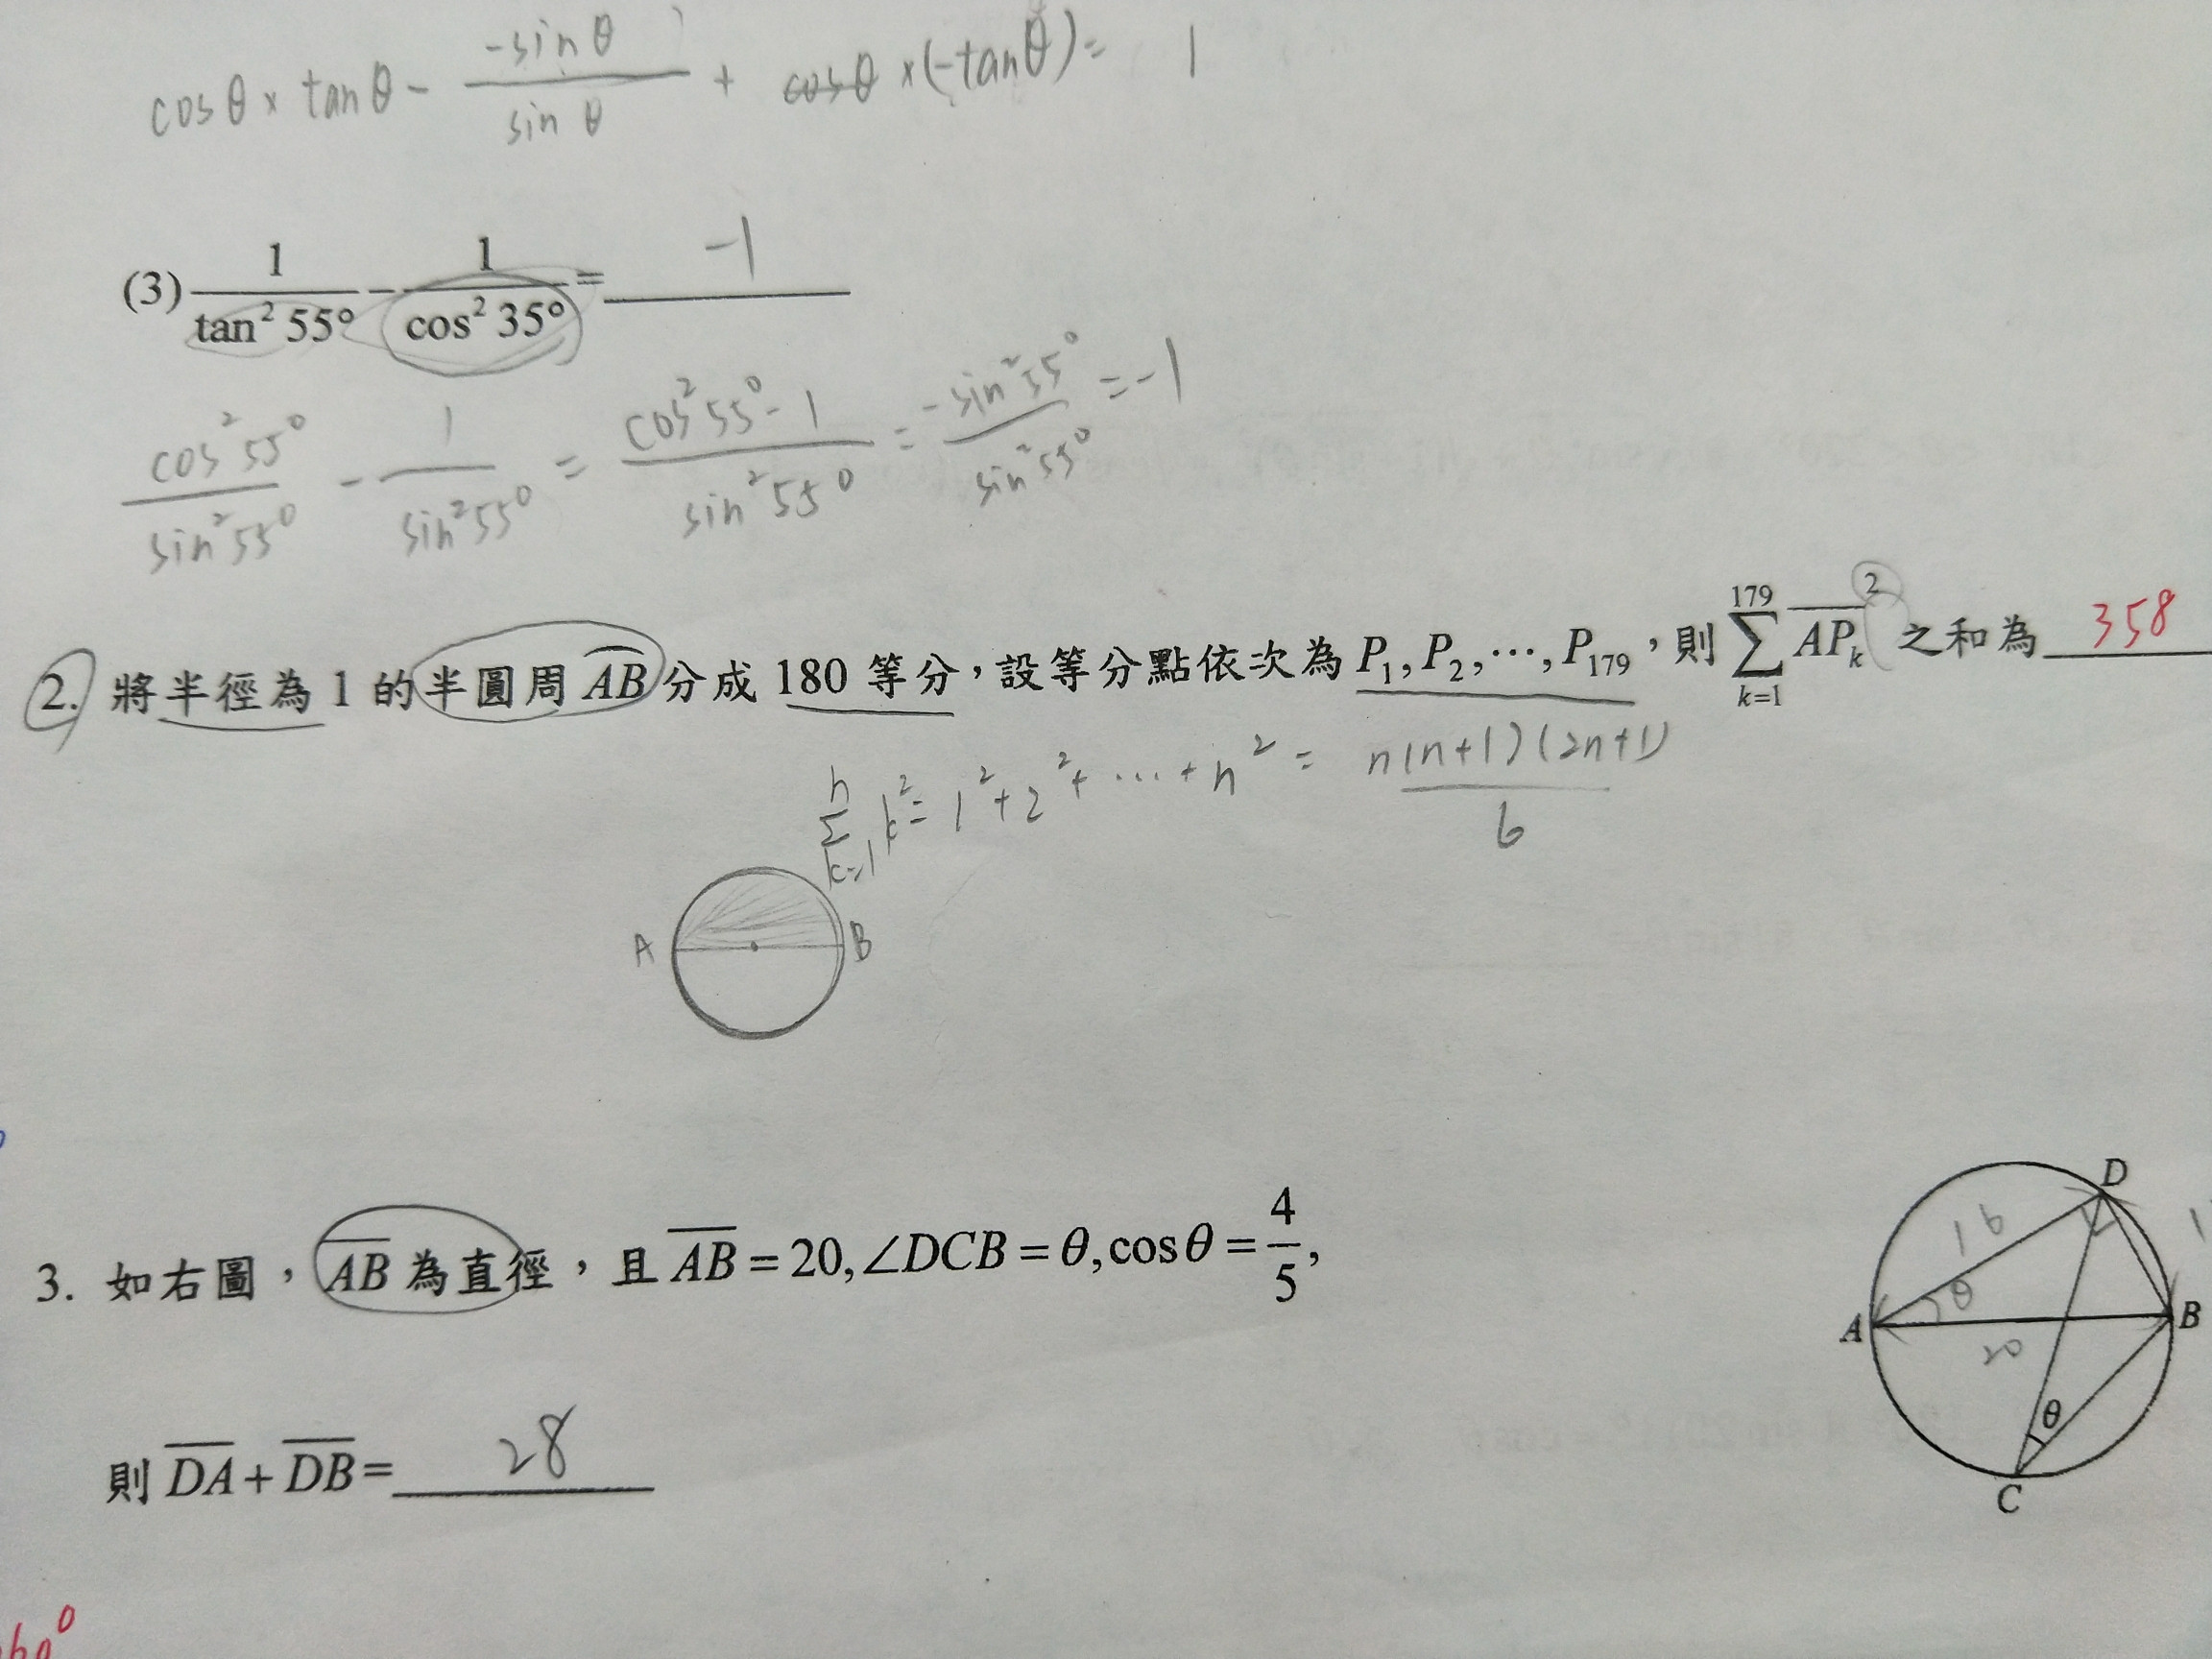 cosθ × tanθ - \frac{-sinθ}{sinθ} + cosθ × (-tanθ) = 1
(3) \frac{1}{tan² 55°} - \frac{1}{cos² 35°} = -1
\frac{cos²55°}{sin²55°} - \frac{1}{sin²55°} = \frac{cos²55°-1}{sin²55°} = \frac{-sin²55°}{sin²55°} = -1
2. 將半徑為 1 的半圓周 \overset{\frown}{AB} 分成 180 等分，設等分點依次為 P₁, P₂, ⋯, P₁₇₉，則 \sum_{k=1}^{179} \overline{AP_k}^2 之和為 358
\sum_{k=1}^{n} k² = 1² + 2² + ⋯ + n² = \frac{n(n+1)(2n+1)}{6}
A B
3. 如右圖，\overline{AB} 為直徑，且 \overline{AB} = 20, ∠DCB = θ, cosθ = \frac{4}{5},
則 \overline{DA} + \overline{DB} = 28
D
16
θ
A B
20
θ
C
60°